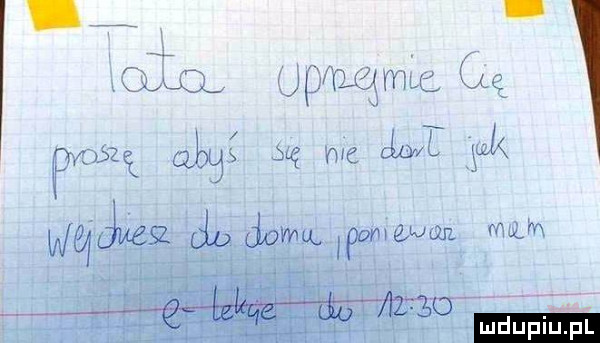 Tata Uprzejmie Cię
proszę abyś się nie darł jak
wejdziesz do domu, ponieważ mam
e-lekcje do 12:30
mdupiu.pl